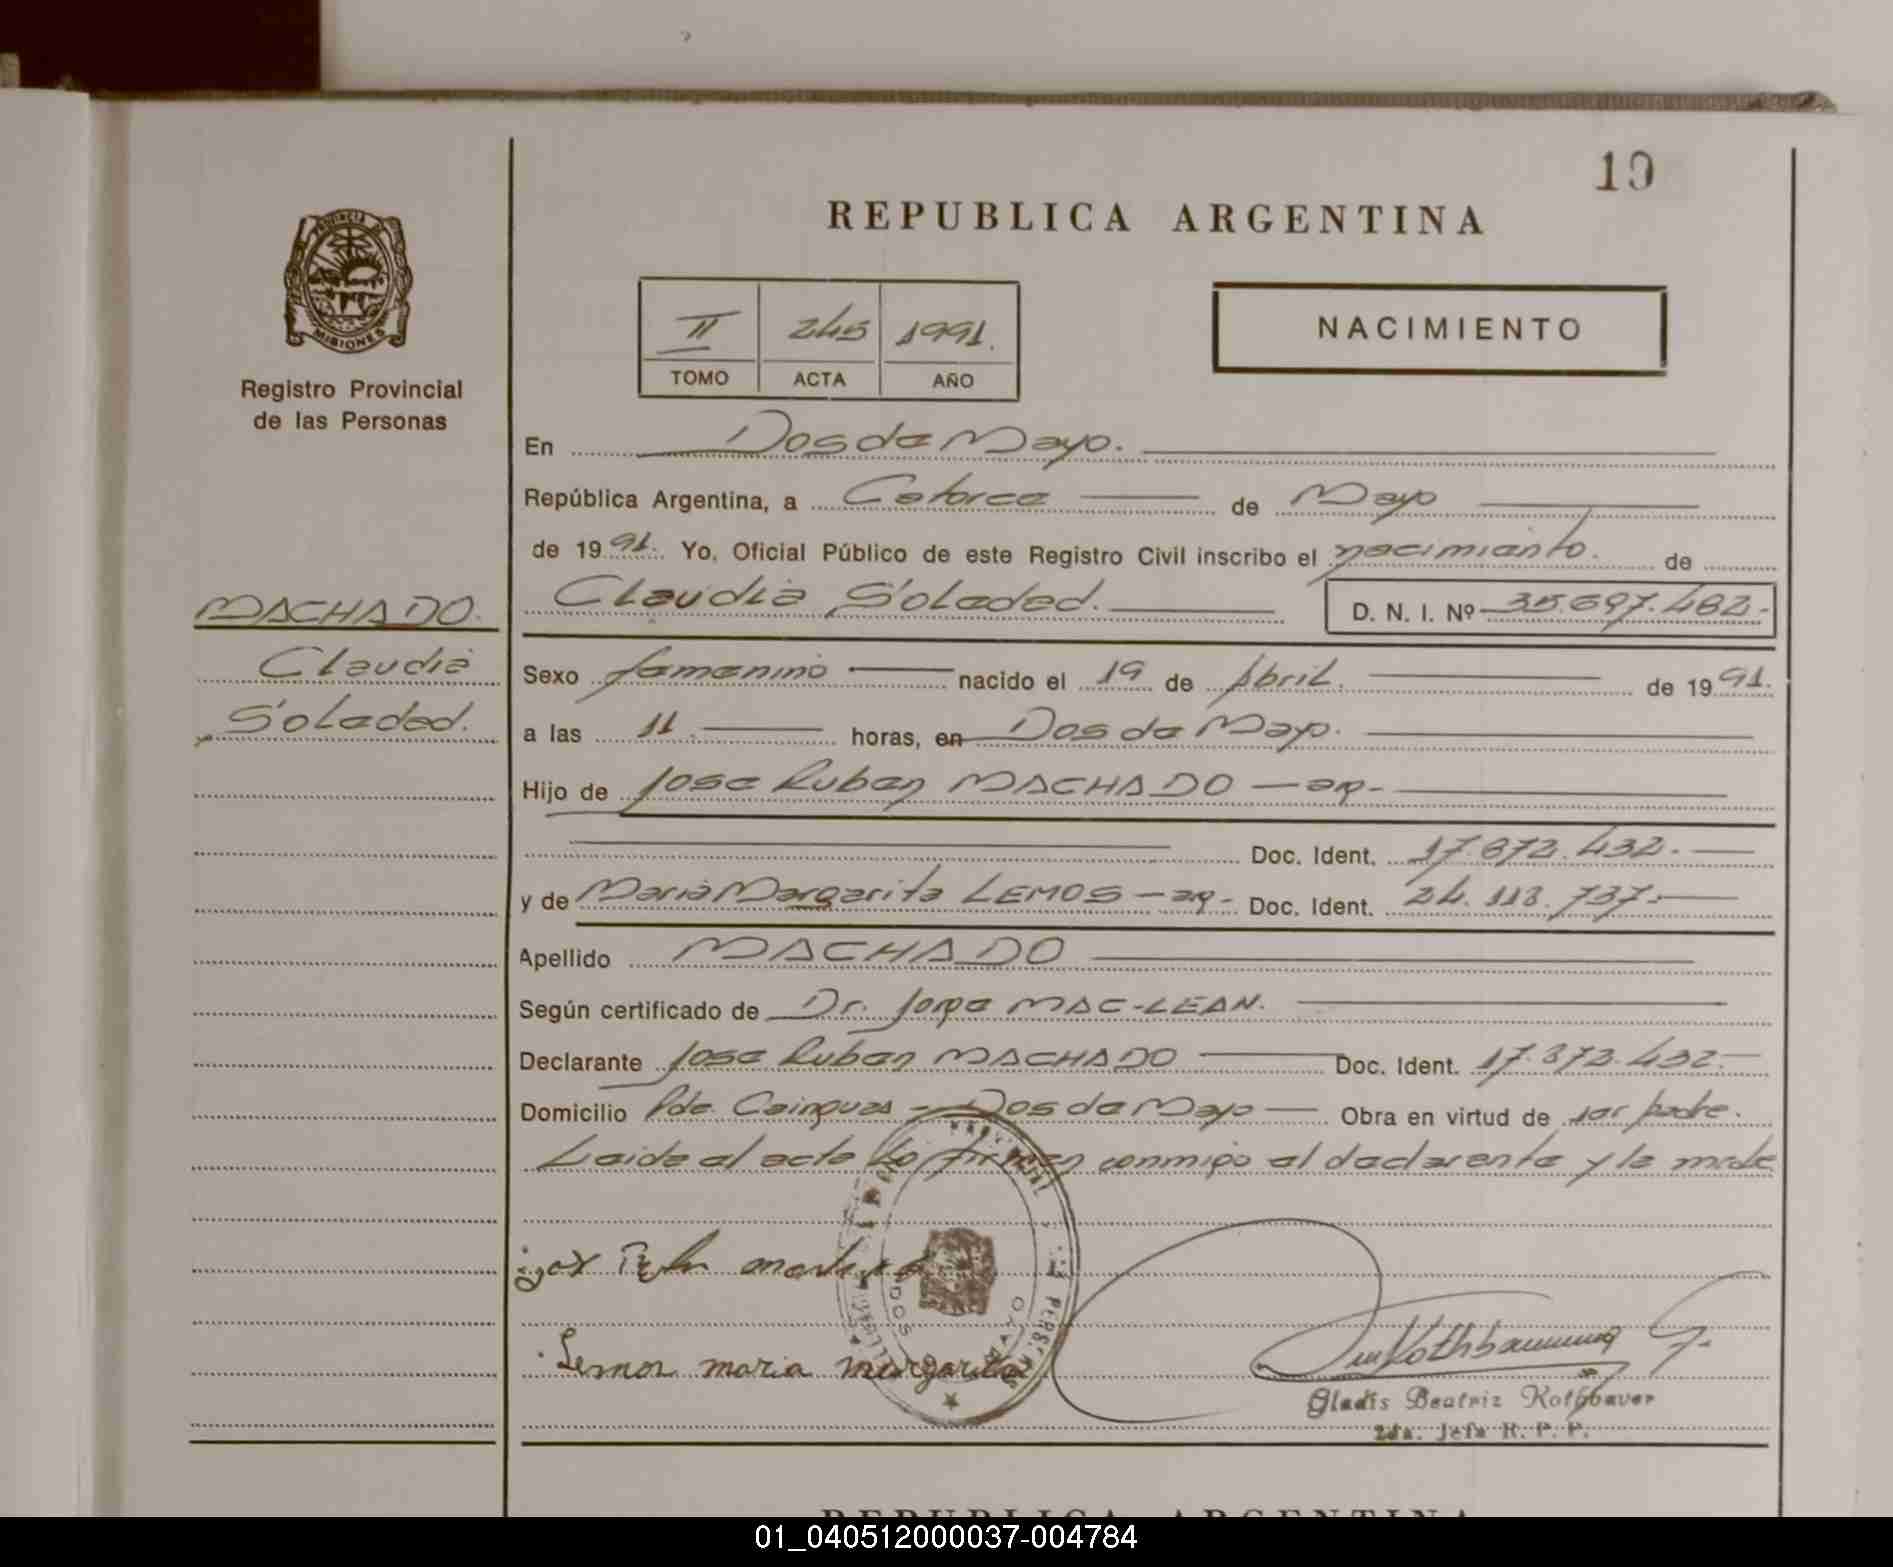 19
REPUBLICA ARGENTINA
MISIONES
Registro Provincial
de las Personas
II 245 1991.
TOMO ACTA AÑO
NACIMIENTO
En Dos de Mayo.
República Argentina, a Catorce de Mayo
de 1991. Yo, Oficial Público de este Registro Civil inscribo el nacimiento. de
Claudia Soledad. D. N. I. Nº 35.697.482.-
MACHADO.
Claudia
Soledad.
Sexo femenino nacido el 19 de Abril. de 1991.
a las 11. horas, en Dos de Mayo.
Hijo de Jose Ruben MACHADO - ar-
Doc. Ident. 17.872.432.-
y de Maria Margarita LEMOS - ar- Doc. Ident. 24.113.737.-
Apellido MACHADO
Según certificado de Dr. Jorge MAC-LEAN.
Declarante Jose Ruben MACHADO Doc. Ident. 17.872.432.-
Domicilio Pde. Cainguas - Dos de Mayo - Obra en virtud de ser padre.
Leida el acta lo firman conmigo el declarante y la madre
Lemos maria margarita
Gladis Beatriz Rothbaver
2da. Jefa R. P. P.
REPUBLICA ARGENTINA
01_040512000037-004784